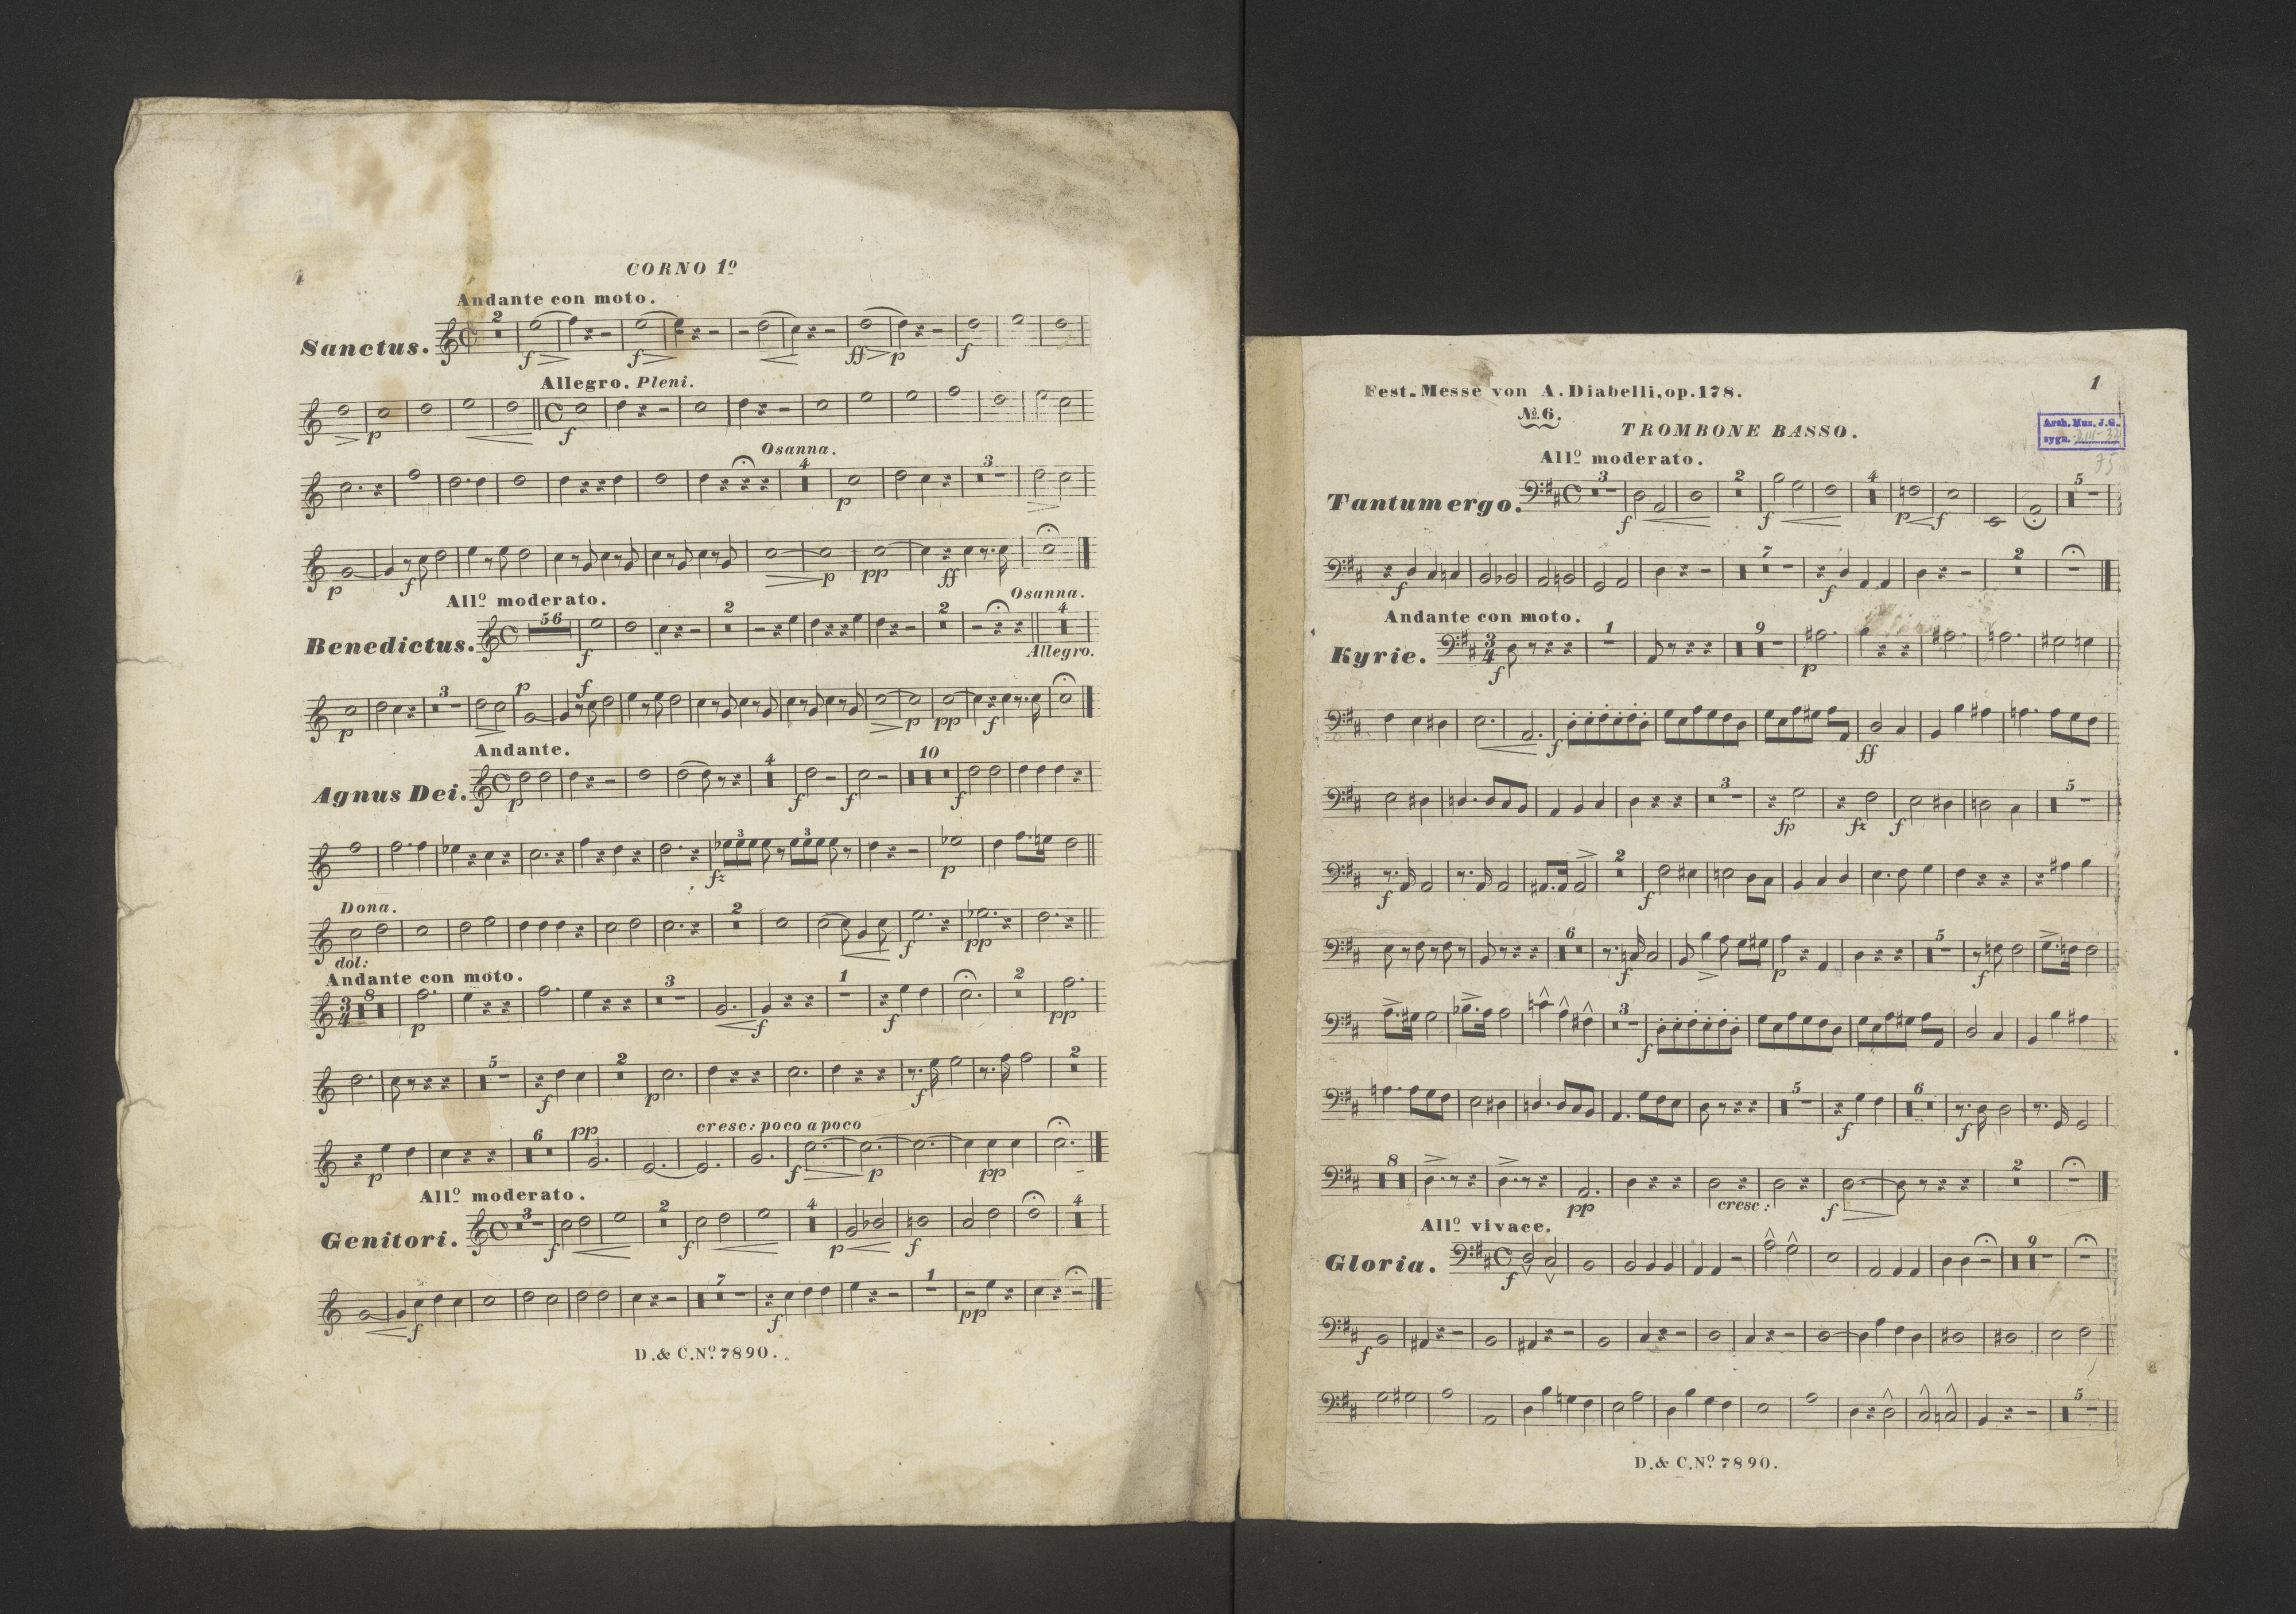 4
CORNO 1º
Andante con moto.
Sanctus.
2
f
f
ff
p
f
Allegro. Pleni.
p
f
Osanna.
4
3
p
p
f
p
pp
ff
Allº moderato.
Osanna.
Benedictus.
56
2
2
4
f
Allegro.
3
p
f
p
p
pp
f
Andante.
Agnus Dei.
4
10
p
f
f
f
3
3
fz
p
Dona.
2
dol:
f
pp
Andante con moto.
3/4
8
3
1
2
p
f
f
pp
5
2
2
f
p
f
6
pp
cresc: poco a poco
p
f
p
pp
Allº moderato.
Genitori.
3
2
4
4
f
f
p
f
7
1
f
f
pp
D. & C. Nº. 7890.
1
Fest-Messe von A. Diabelli, op. 178.
Nº. 6.
TROMBONE BASSO.
Arch. Muz. J.G.
sygn.
75
Allº moderato.
Tantum ergo.
3
2
4
5
f
f
p
f
7
2
f
f
Andante con moto.
Kyrie.
3/4
1
9
f
p
f
ff
3
5
fp
fz
f
2
f
f
6
5
f
p
f
3
f
5
6
f
f
8
2
pp
cresc:
f
Allº vivace.
Gloria.
9
f
f
5
D. & C. Nº. 7890.